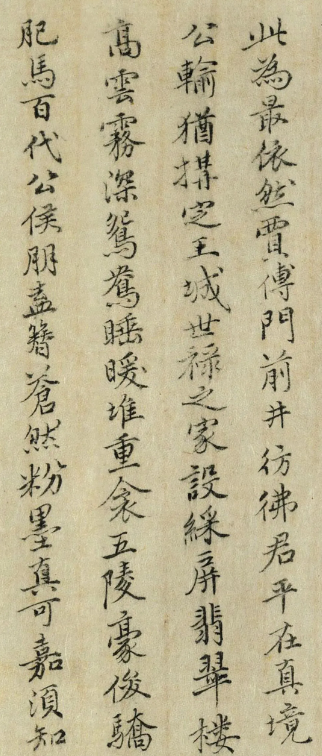 此為最依然賈傅門前井彷彿君平在真境
公輪猶搆定王城世祿之家設綵屏翡翠樓
高雲霧深鴛鴦睡暖堆重衾五陵豪俊驕
肥馬百代公侯朋盍簪蒼然粉墨真可嘉須知